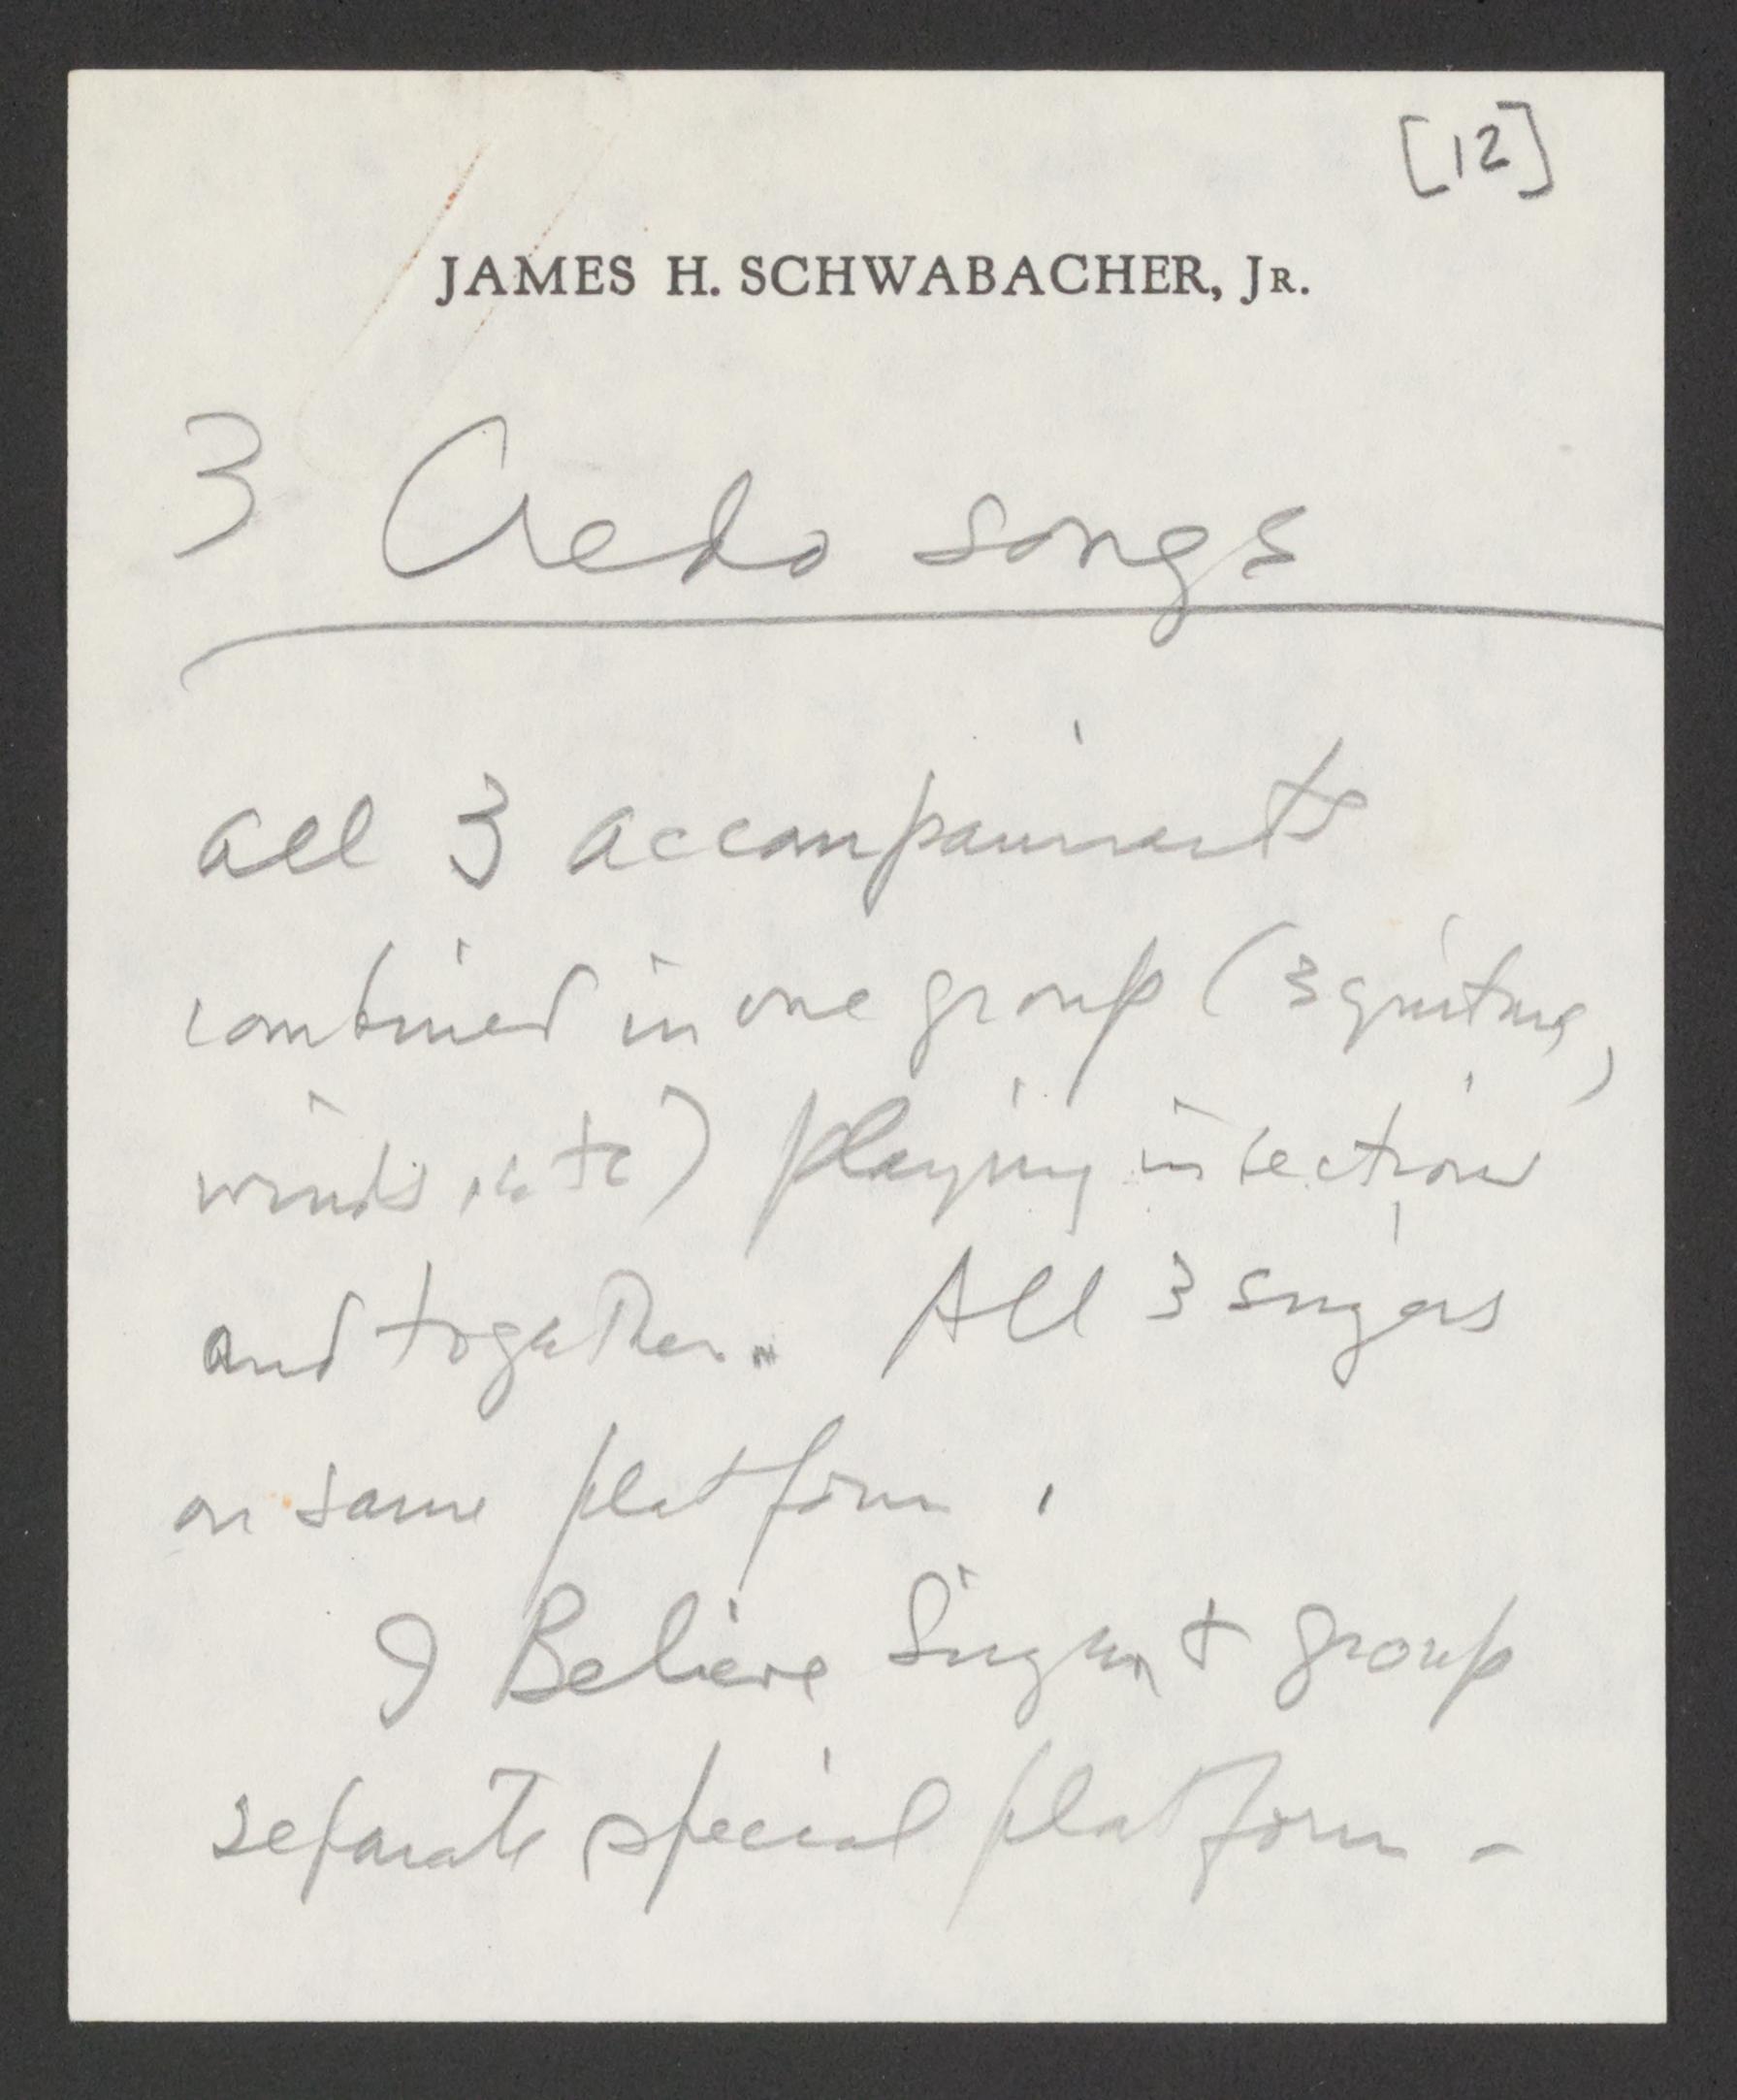 [12]
JAMES H. SCHWABACHER, JR.
3 Credo songs
all 3 accompaniments
combined in one group (3 guitars,
winds, etc) playing in sections
and together. All 3 singers
on same platform.
I Believe Singer + group
separate special platform -